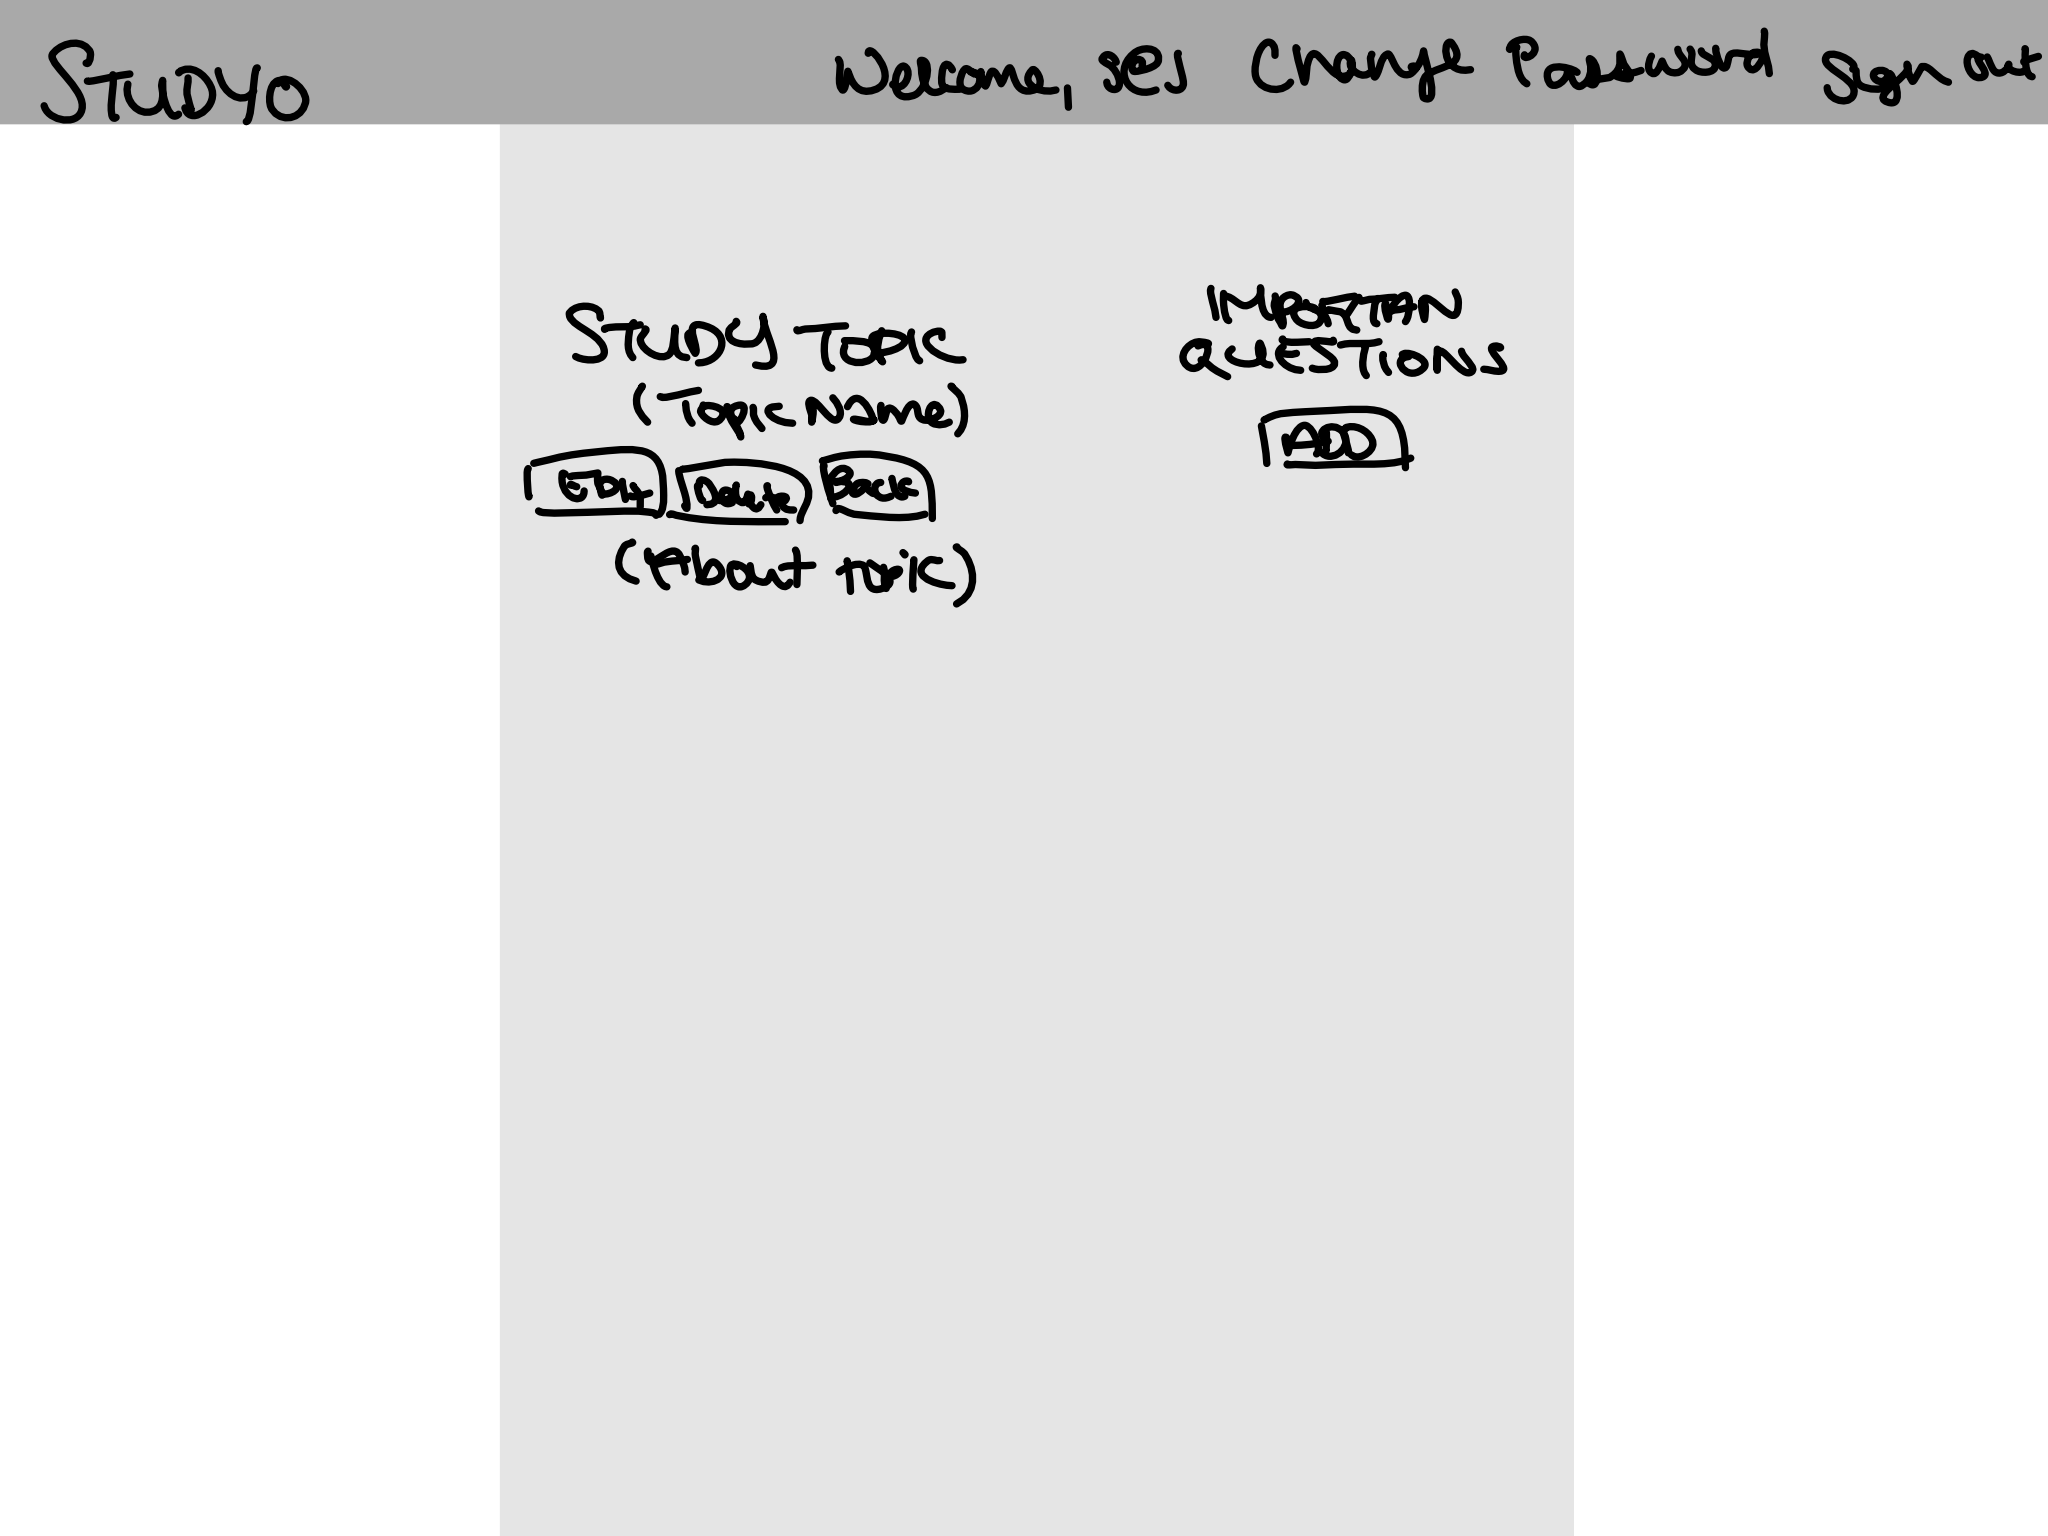 STUDYO
Welcome, sei Change Password Sign out
STUDY TOPIC
(Topic Name)
Edit Delete Back
(About topic)
IMPORTAN
QUESTIONS
ADD